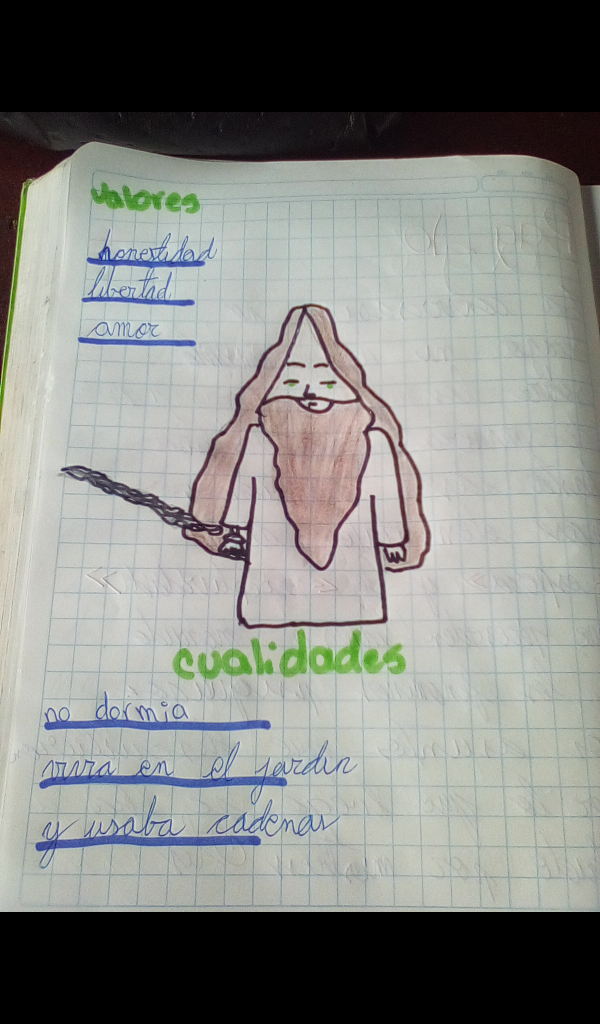 valores
honestidad
libertad
amor
cualidades
no dormia
vivia en el jardin
y usaba cadenas